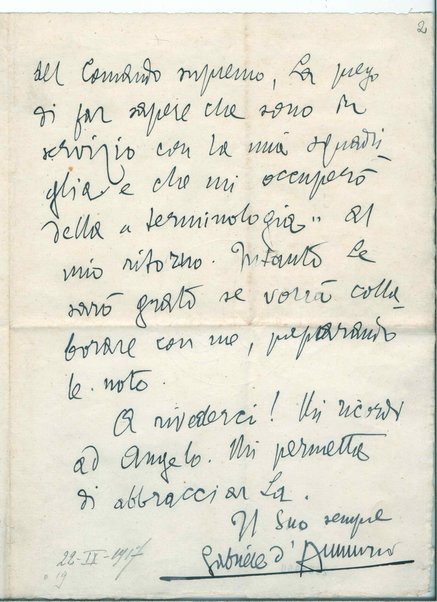 2
del Comando supremo, La prego
di far sapere che sono in
servizio con la mia squadri
glia e che mi occuperò
della « terminologia » al
mio ritorno. Intanto Le
sarò grato se vorrà colla-
borare con me, preparando
le note.
A rivederci! Mi ricordi
ad Angelo. Mi permetta
di abbracciarLa.
Il Suo sempre
Gabriele d'Annunzio
22-II-1917
19